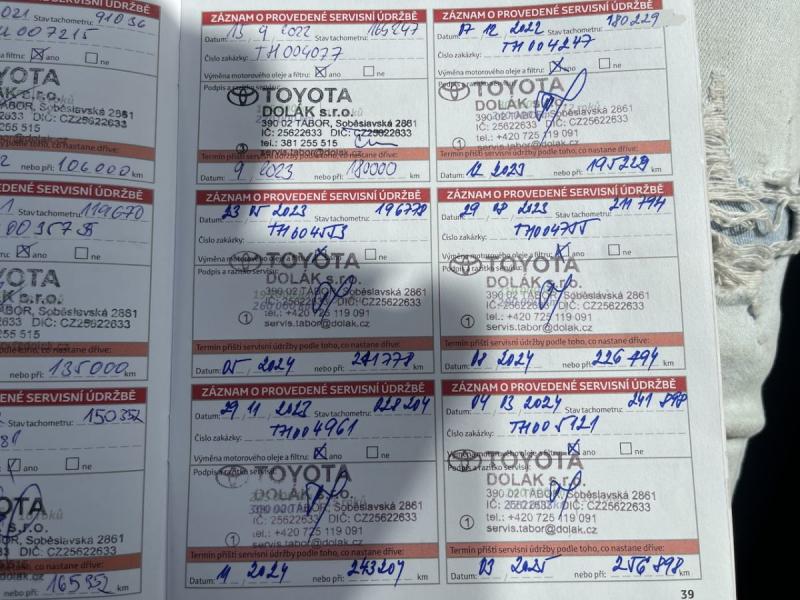 2021 91036
007215
ano ne
TOYOTA
s.r.o.
TÁBOR, Soběslavská 2861
DIČ: CZ25622633
255 515
podle toho, co nastane dříve:
nebo při: 106000 km
ZÁZNAM O PROVEDENÉ SERVISNÍ ÚDRŽBĚ
Datum: 13 9 2022 Stav tachometru:
Číslo zakázky: TH004077
Výměna motorového oleje a filtru: ano ne
Podpis a razítko servisu:
TOYOTA
DOLÁK s.r.o.
390 02 TÁBOR, Soběslavská 2861
IČ: 25622633 DIČ: CZ25622633
tel.: 381 255 515
servis.tabor@dolak.cz
Termín příští servisní údržby podle toho, co nastane dříve:
Datum: 9 2023 nebo při: 180000 km
ZÁZNAM O PROVEDENÉ SERVISNÍ ÚDRŽBĚ
Datum: 07 12 2022 Stav tachometru: 180229
Číslo zakázky: TH004247
Výměna motorového oleje a filtru: ano ne
Podpis a razítko servisu:
TOYOTA
DOLÁK s.r.o.
390 02 TÁBOR, Soběslavská 2861
IČ: 25622633 DIČ: CZ25622633
tel.: +420 725 119 091
servis.tabor@dolak.cz
Termín příští servisní údržby podle toho, co nastane dříve:
Datum: 12 2023 nebo při: 195229 km
DENÉ SERVISNÍ ÚDRŽBĚ
Stav tachometru: 119670
ano ne
TOYOTA
s.r.o.
TÁBOR, Soběslavská 2861
DIČ: CZ25622633
podle toho, co nastane dříve:
nebo při: 135000 km
ZÁZNAM O PROVEDENÉ SERVISNÍ ÚDRŽBĚ
Datum: 23 05 2023 Stav tachometru: 196778
Číslo zakázky: TH004553
Výměna motorového oleje a filtru: ano ne
Podpis a razítko servisu:
TOYOTA
DOLÁK s.r.o.
390 02 TÁBOR, Soběslavská 2861
IČ: 25622633 DIČ: CZ25622633
tel.: +420 725 119 091
servis.tabor@dolak.cz
Termín příští servisní údržby podle toho, co nastane dříve:
Datum: 05 2024 nebo při: 211778 km
ZÁZNAM O PROVEDENÉ SERVISNÍ ÚDRŽBĚ
Datum: 29 08 2023 Stav tachometru: 211794
Číslo zakázky: TH004755
Výměna motorového oleje a filtru: ano ne
Podpis a razítko servisu:
TOYOTA
DOLÁK s.r.o.
390 02 TÁBOR, Soběslavská 2861
IČ: 25622633 DIČ: CZ25622633
tel.: +420 725 119 091
servis.tabor@dolak.cz
Termín příští servisní údržby podle toho, co nastane dříve:
Datum: 08 2024 nebo při: 226 494 km
DENÉ SERVISNÍ ÚDRŽBĚ
Stav tachometru: 150352
ano ne
TOYOTA
s.r.o.
TÁBOR, Soběslavská 2861
DIČ: CZ25622633
podle toho, co nastane dříve:
nebo při: 165352 km
ZÁZNAM O PROVEDENÉ SERVISNÍ ÚDRŽBĚ
Datum: 29 11 2023 Stav tachometru: 028204
Číslo zakázky: TH004961
Výměna motorového oleje a filtru: ano ne
Podpis a razítko servisu:
TOYOTA
DOLÁK s.r.o.
390 02 TÁBOR, Soběslavská 2861
IČ: 25622633 DIČ: CZ25622633
tel.: +420 725 119 091
servis.tabor@dolak.cz
Termín příští servisní údržby podle toho, co nastane dříve:
Datum: 11 2024 nebo při: 243204 km
ZÁZNAM O PROVEDENÉ SERVISNÍ ÚDRŽBĚ
Datum: 04 03 2024 Stav tachometru: 241 898
Číslo zakázky: TH005121
Výměna motorového oleje a filtru: ano ne
Podpis a razítko servisu:
TOYOTA
DOLÁK s.r.o.
390 02 TÁBOR, Soběslavská 2861
IČ: 25622633 DIČ: CZ25622633
tel.: +420 725 119 091
servis.tabor@dolak.cz
Termín příští servisní údržby podle toho, co nastane dříve:
Datum: 03 2025 nebo při: 256 898 km
39